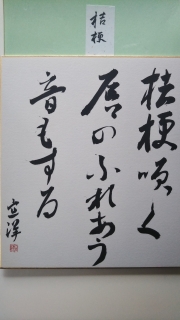 桔梗
桔梗咲く
唇のふれあう
音もする